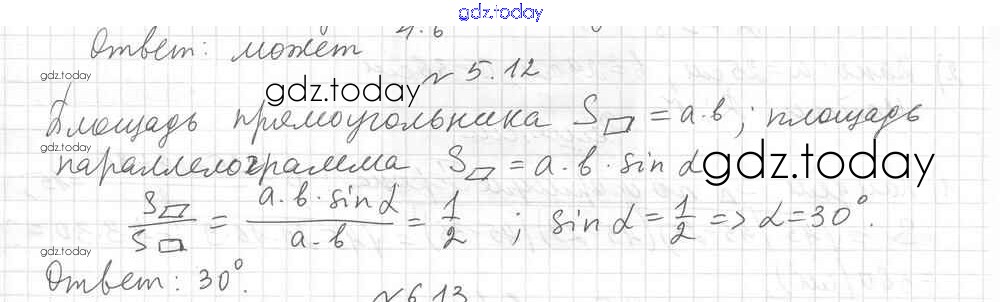 gdz.today
Ответ: может
4.6
gdz.today
№ 5.12
gdz.today
Площадь прямоугольника S▭ = a·b; площадь
gdz.today
параллелограмма S▱ = a·b·sin α
gdz.today
S▱/S▭ = a·b·sin α/a·b = 1/2 ; sin α = 1/2 => α = 30°.
gdz.today
Ответ: 30°.
№ 6.13